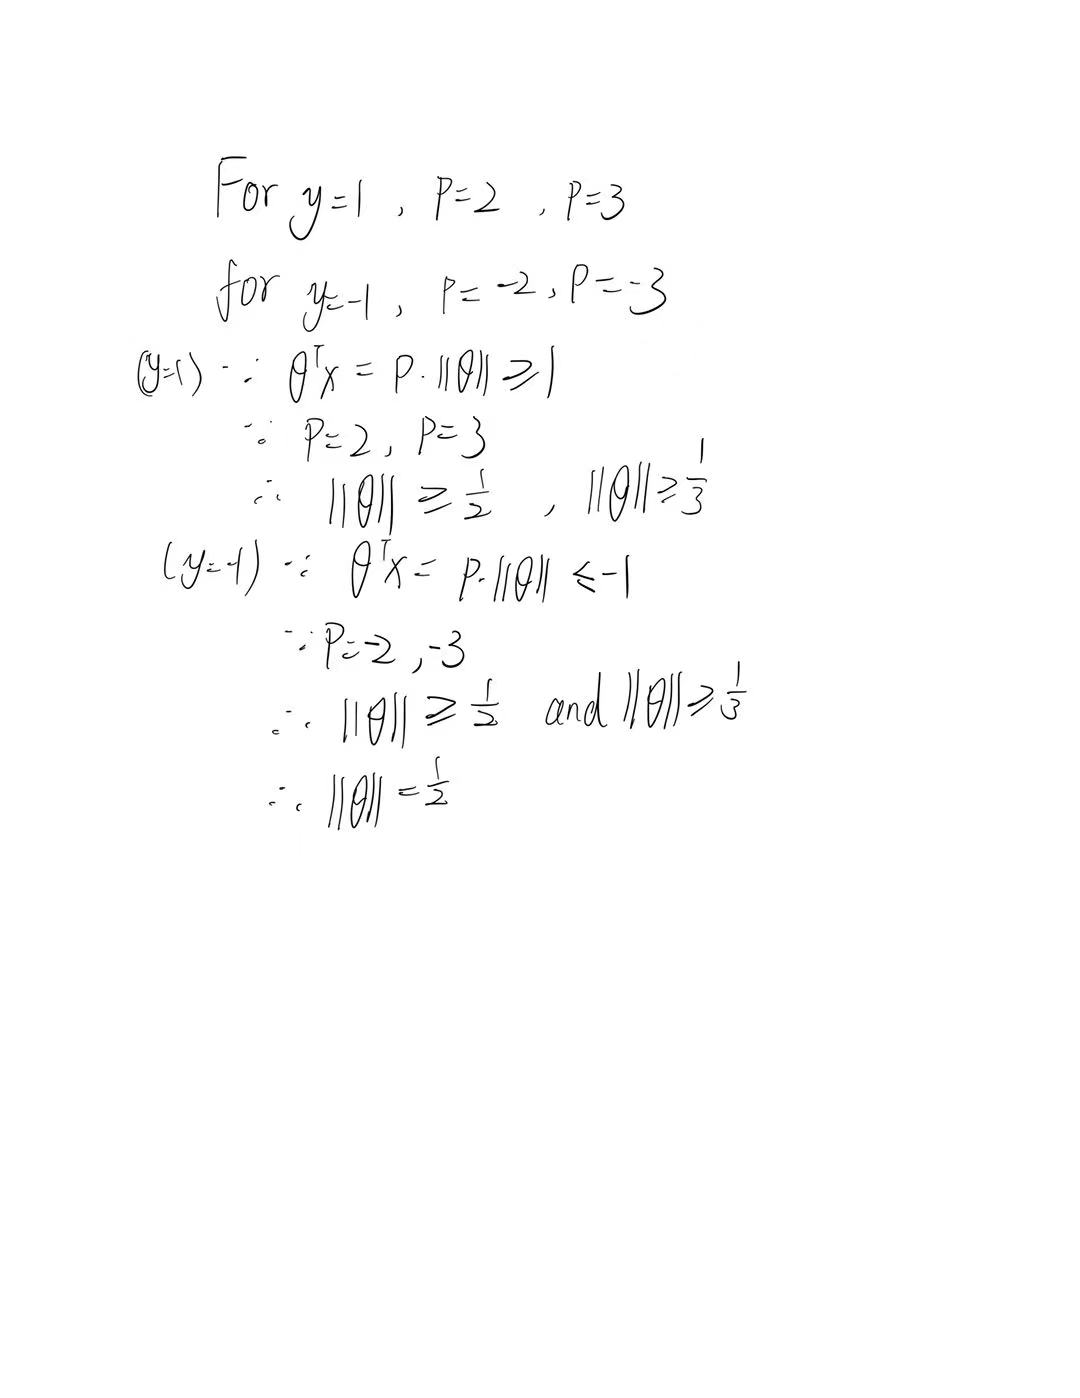 For y=1, P=2, P=3
for y=-1, P=-2, P=-3
(y=1) ∵ θᵀx = P·||θ|| ⩾ 1
∵ P=2, P=3
∴ ||θ|| ⩾ 1/2, ||θ|| ⩾ 1/3
(y=-1) ∵ θᵀx = P·||θ|| ⩽ -1
∵ P=-2, -3
∴ ||θ|| ⩾ 1/2 and ||θ|| ⩾ 1/3
∴ ||θ|| = 1/2